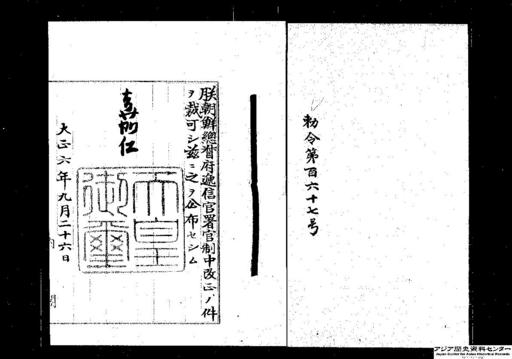 勅令第百六十七号
朕朝鮮總督府遞信官署官制中改正ノ件
ヲ裁可シ茲ニ之ヲ公布セシム
嘉仁
天皇御璽
大正六年九月二十六日
アジア歴史資料センター
Japan Center for Asian Historical Records